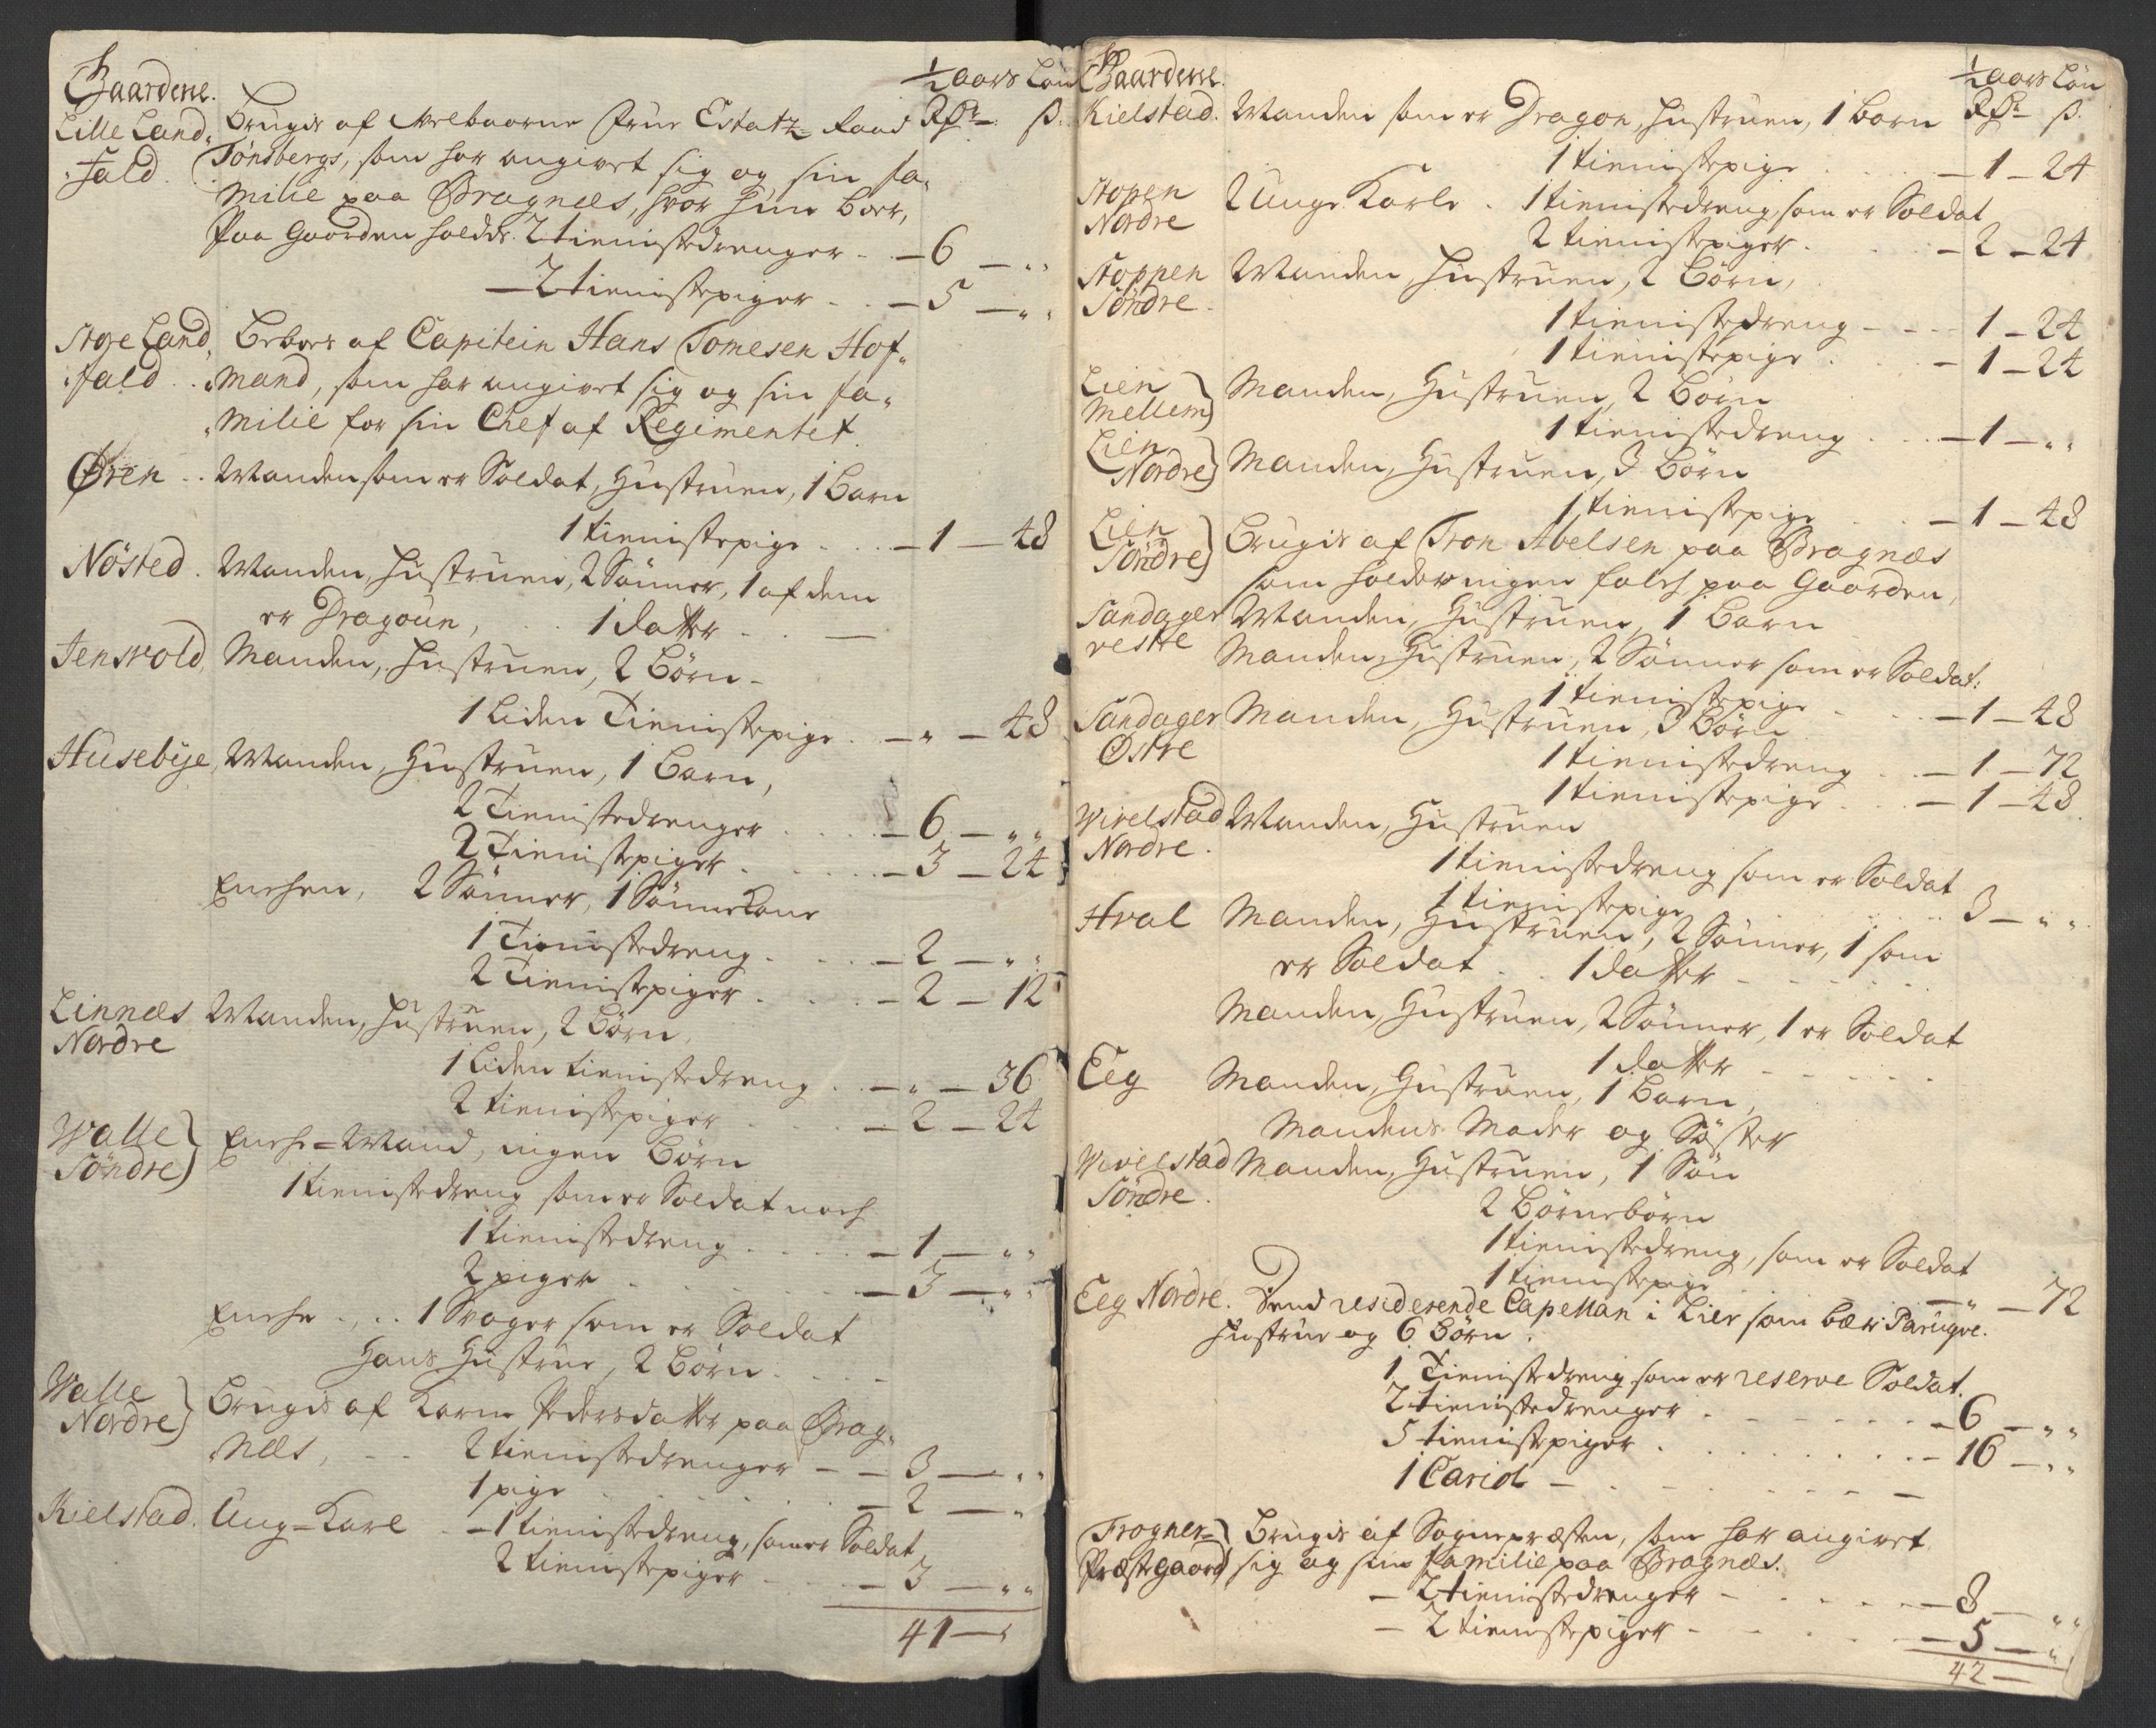 Gaardene.
1/2 aars Løn
Lille Land, Brugis af Velbaarne Frue Estatz-Raad Rdr ß.
fald. Tønsbergs, som har angivet sig og sin fa,
milie paa Bragnæs, hvor hun boer,
Paa Gaarden holdes 2 tienistedrenger - 6 - „
2 tienistepiger - 5 - „
Store Land, Beboes af Capitein Hans Tomesen Hof,
fald .. mand, som har angivet sig og sin fa,
milie for sin Chef af Regimentet.
Øren .. Manden som er Soldat, Hustruen, 1 Barn
1 tienistepige - 1 - 48
Nøsted. Manden, Hustruen, 2 Sønner, 1 af dem
er Dragoun, 1 datter -
Jensvold, Manden, Hustruen, 2 Børn -
1 Liden Tienistepige - „ - 48
Husebÿe, Manden, Hustruen, 1 Barn,
2 Tienistedrenger - 6 - „
2 Tienistepiger - 3 - 24
Enchen, 2 Sønner, 1 Sønnekone
1 Tienistedreng - 2 - „
2 Tienistepiger - 2 - 12
Linnæs Manden, Hustruen, 2 Børn,
Nordre
1 Liden tienistedreng - „ - 36
2 tienistepiger - 2 - 24
Walle Enche-Mand, ingen Børn
Søndre
1 tienistedreng som er Soldat noch
1 tienistedreng - 1 - „
2 piger - 3 - „
Enche ... 1 Svoger som er Soldat
Hans Hustrue, 2 Børn
Walle Brugis af Karen Pedersdatter paa Brag,
Nordre
næs, - - 2 tienistedrenger - 3 - „
1 pige - 2 - „
Kielstad. Ung-Karl - 1 tienistedreng, som er Soldat
2 tienistepiger - 3 - „
41 - „
Gaardene.
1/2 aars Løn
Kielstad. Manden som er Dragon, Hustruen, 1 barn Rdr ß.
1 tienistepige - 1 - 24
Stopen 2 Unge Karle . 1 tienistedreng, som er Soldat
Nordre 2 tienistepiger - 2 - 24
Stoppen Manden, Hustruen, 2 Børn,
Søndre.
1 tienistedreng - 1 - 24
1 tienistepige - 1 - 24
Lien Manden, Hustruen, 2 Børn
mellem
1 tienistedreng - 1 - „
Lien
Nordre Manden, Hustruen, 3 Børn
1 tienistepige - 1 - 48
Lien Brugis af Tron Abelsen paa Bragnæs
Søndre som holder ingen folch paa Gaarden,
Sandager Manden, Hustruen, 1 Barn
vestre Manden, Hustruen, 2 Sønner som er Soldat:
1 tienistepige - 1 - 48
Sandager Manden, Hustruen, 3 Børn
Østre
1 tienistedreng - 1 - 72
1 tienistepige - 1 - 48
Wivelstad Manden, Hustruen
Nordre.
1 tienistedreng som er Soldat
1 tienistepige 3 - „
Hval Manden, Hustruen, 2 Sønner, 1 som
er Soldat . . 1 datter
Manden, Hustruen, 2 Sønner, 1 er Soldat
1 datter
Eeg Manden, Hustruen, 1 Barn,
Mandens Moder og Søster
Wivelstad Manden, Hustruen, 1 Søn
Søndre.
2 Børnebørn
1 tienistedreng, som er Soldat
1 tienistepige - „ - 72
Eeg Nordre. Dend residerende Capellan i Lier som bær Paruqve.
Hustrue og 6 Børn.
1 Tienistedreng som er reserve Soldat.
2 tienistedrenger - 6 - „
5 tienistepiger - 16 - „
1 Cariol -
Frogner- Brugis af Sognepræsten, som har angivet
Præstegaard sig og sin familie paa Bragnæs.
- 2 tienistedrenger - 8 - „
- 2 tienistepiger - 5 - „
42 -